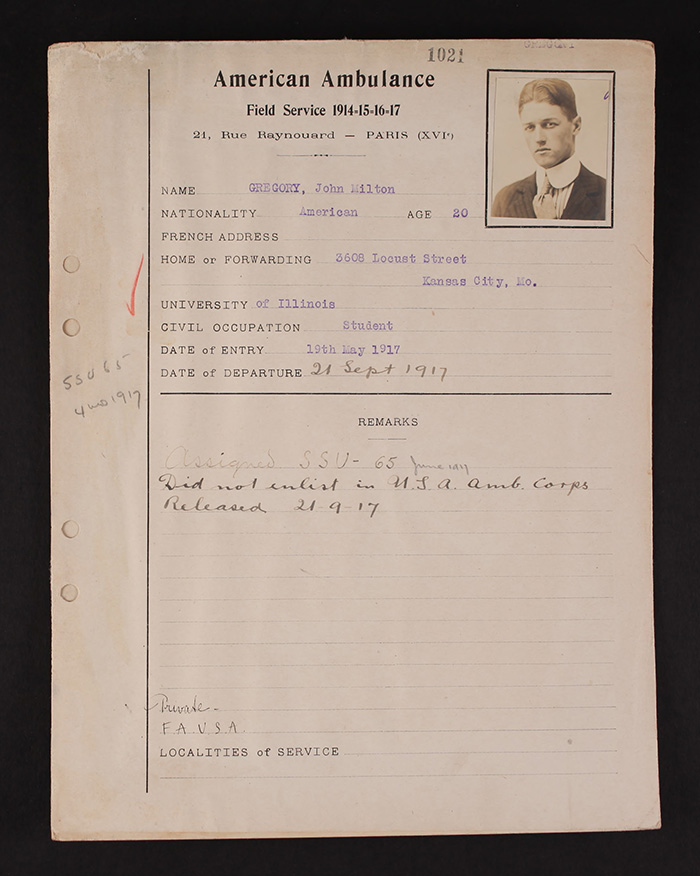 1021
GREGORY
American Ambulance
Field Service 1914-15-16-17
21, Rue Raynouard — PARIS (XVIe)
NAME GREGORY, John Milton
NATIONALITY American AGE 20
FRENCH ADDRESS
HOME or FORWARDING 3608 Locust Street
Kansas City, Mo.
UNIVERSITY of Illinois
CIVIL OCCUPATION Student
DATE of ENTRY 19th May 1917
DATE of DEPARTURE 21 Sept 1917
SSU 65
4 mo 1917
REMARKS
Assigned SSU - 65 June 1917
Did not enlist in U.S.A. Amb. Corps
Released 21-9-17
Private -
F.A. U.S.A.
LOCALITIES of SERVICE